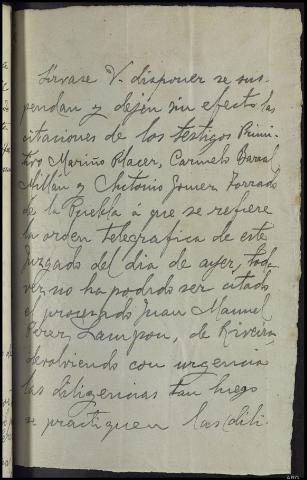 Sírvase V. disponer se sus-
pendan y dejen sin efecto las
citaciones de los testigos Primi-
tivo Mariño Placer, Carmelo
Millán y Antonio Gomez Torrado
de la Puebla a que se refiere
la orden telegrafica de este
Juzgado del dia de ayer, toda
vez no ha podido ser citado
el procesado Juan Manuel
Perez Lampon, de Riveira,
devolviendo con urgencia
las diligencias tan luego
se practiquen las dili-